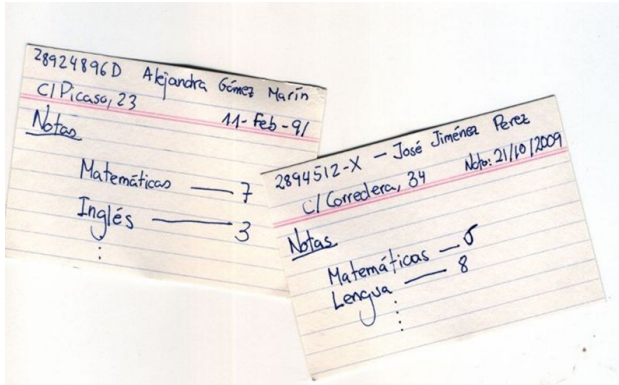 28924896D Alejandra Gómez Marín
C/Picaso, 23
11-Feb-91
Notas
Matemáticas — 7
Inglés — 3
⋮
2894512-X — José Jiménez Perez
C/ Corredera, 34 Nato: 21/10/2009
Notas
Matemáticas — 5
Lengua — 8
⋮